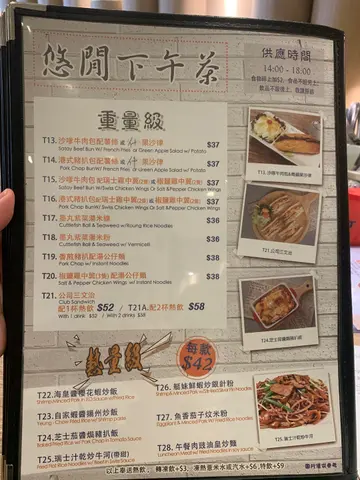 悠閒下午茶
供應時間
14:00 - 18:00
重量級
T13. 沙嗲牛肉包配薯條 或 蘋果沙律 $37
Satay Beef Bun w/ French Fries or Green Apple Salad w/ Potato
T14. 港式豬扒包配薯條 或 蘋果沙律 $37
Pork Chop Bun w/ French Fries or Green Apple Salad w/ Potato
T15. 沙嗲牛肉包配瑞士雞中翼(2隻) 或 椒鹽雞中翼(2隻) $37
Satay Beef Bun w/ Swiss Chicken Wings Or Salt & Pepper Chicken Wings
T16. 港式豬扒包配瑞士雞中翼(2隻) 或 椒鹽雞中翼(2隻) $37
Pork Chop Bun w/ Swiss Chicken Wings Or Salt & Pepper Chicken Wings
T17. 墨丸紫菜湯米線 $36
Cuttlefish Ball & Seaweed w/ Round Rice Noodles
T18. 墨丸紫菜湯米粉 $36
Cuttlefish Ball & Seaweed w/ Vermicelli
T19. 香煎豬扒配湯公仔麵 $38
Pork Chop w/ Instant Noodles
T20. 椒鹽雞中翼(3隻)配湯公仔麵 $38
Salt & Pepper Chicken Wings w/ Instant Noodles
T21. 公司三文治
Club Sandwich
配1杯熱飲 $52 / T21A. 配2杯熱飲 $58
With 1 drink $52 / With 2 drinks $58
T13. 沙嗲牛肉包配蘋果沙律
T21. 公司三文治
T24. 芝士茄醬焗豬扒飯
熱量級
每款
$42
T22. 海皇醬櫻花蝦炒飯
T23. 自家雞醬揚州炒飯
T24. 芝士茄醬焗豬扒飯
Baked Rice w/ Pork Chop in Tomato Sauce
T25. 瑞士汁乾炒牛河(帶甜)
T26. 鬆妹鮮蝦炒銀針粉
T27. 魚香茄子炆米粉
T28. 午餐肉豉油皇炒麵
T25. 瑞士汁乾炒牛河
以上奉送熱飲， 轉凍飲+$3, 凍熱薏米水或汽水+$6, 特飲+$9
圖片謹供參考